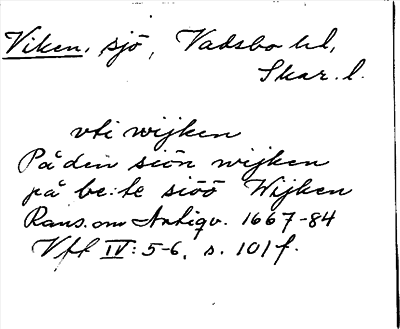 Viken, sjö, Vadsbo hd,
Skar. l.
vti wijken
På den siön wijken
på be:te siöö Wijken
Rans. om Antiqv. 1667-84
Vff IV: 5-6, s. 101 f.